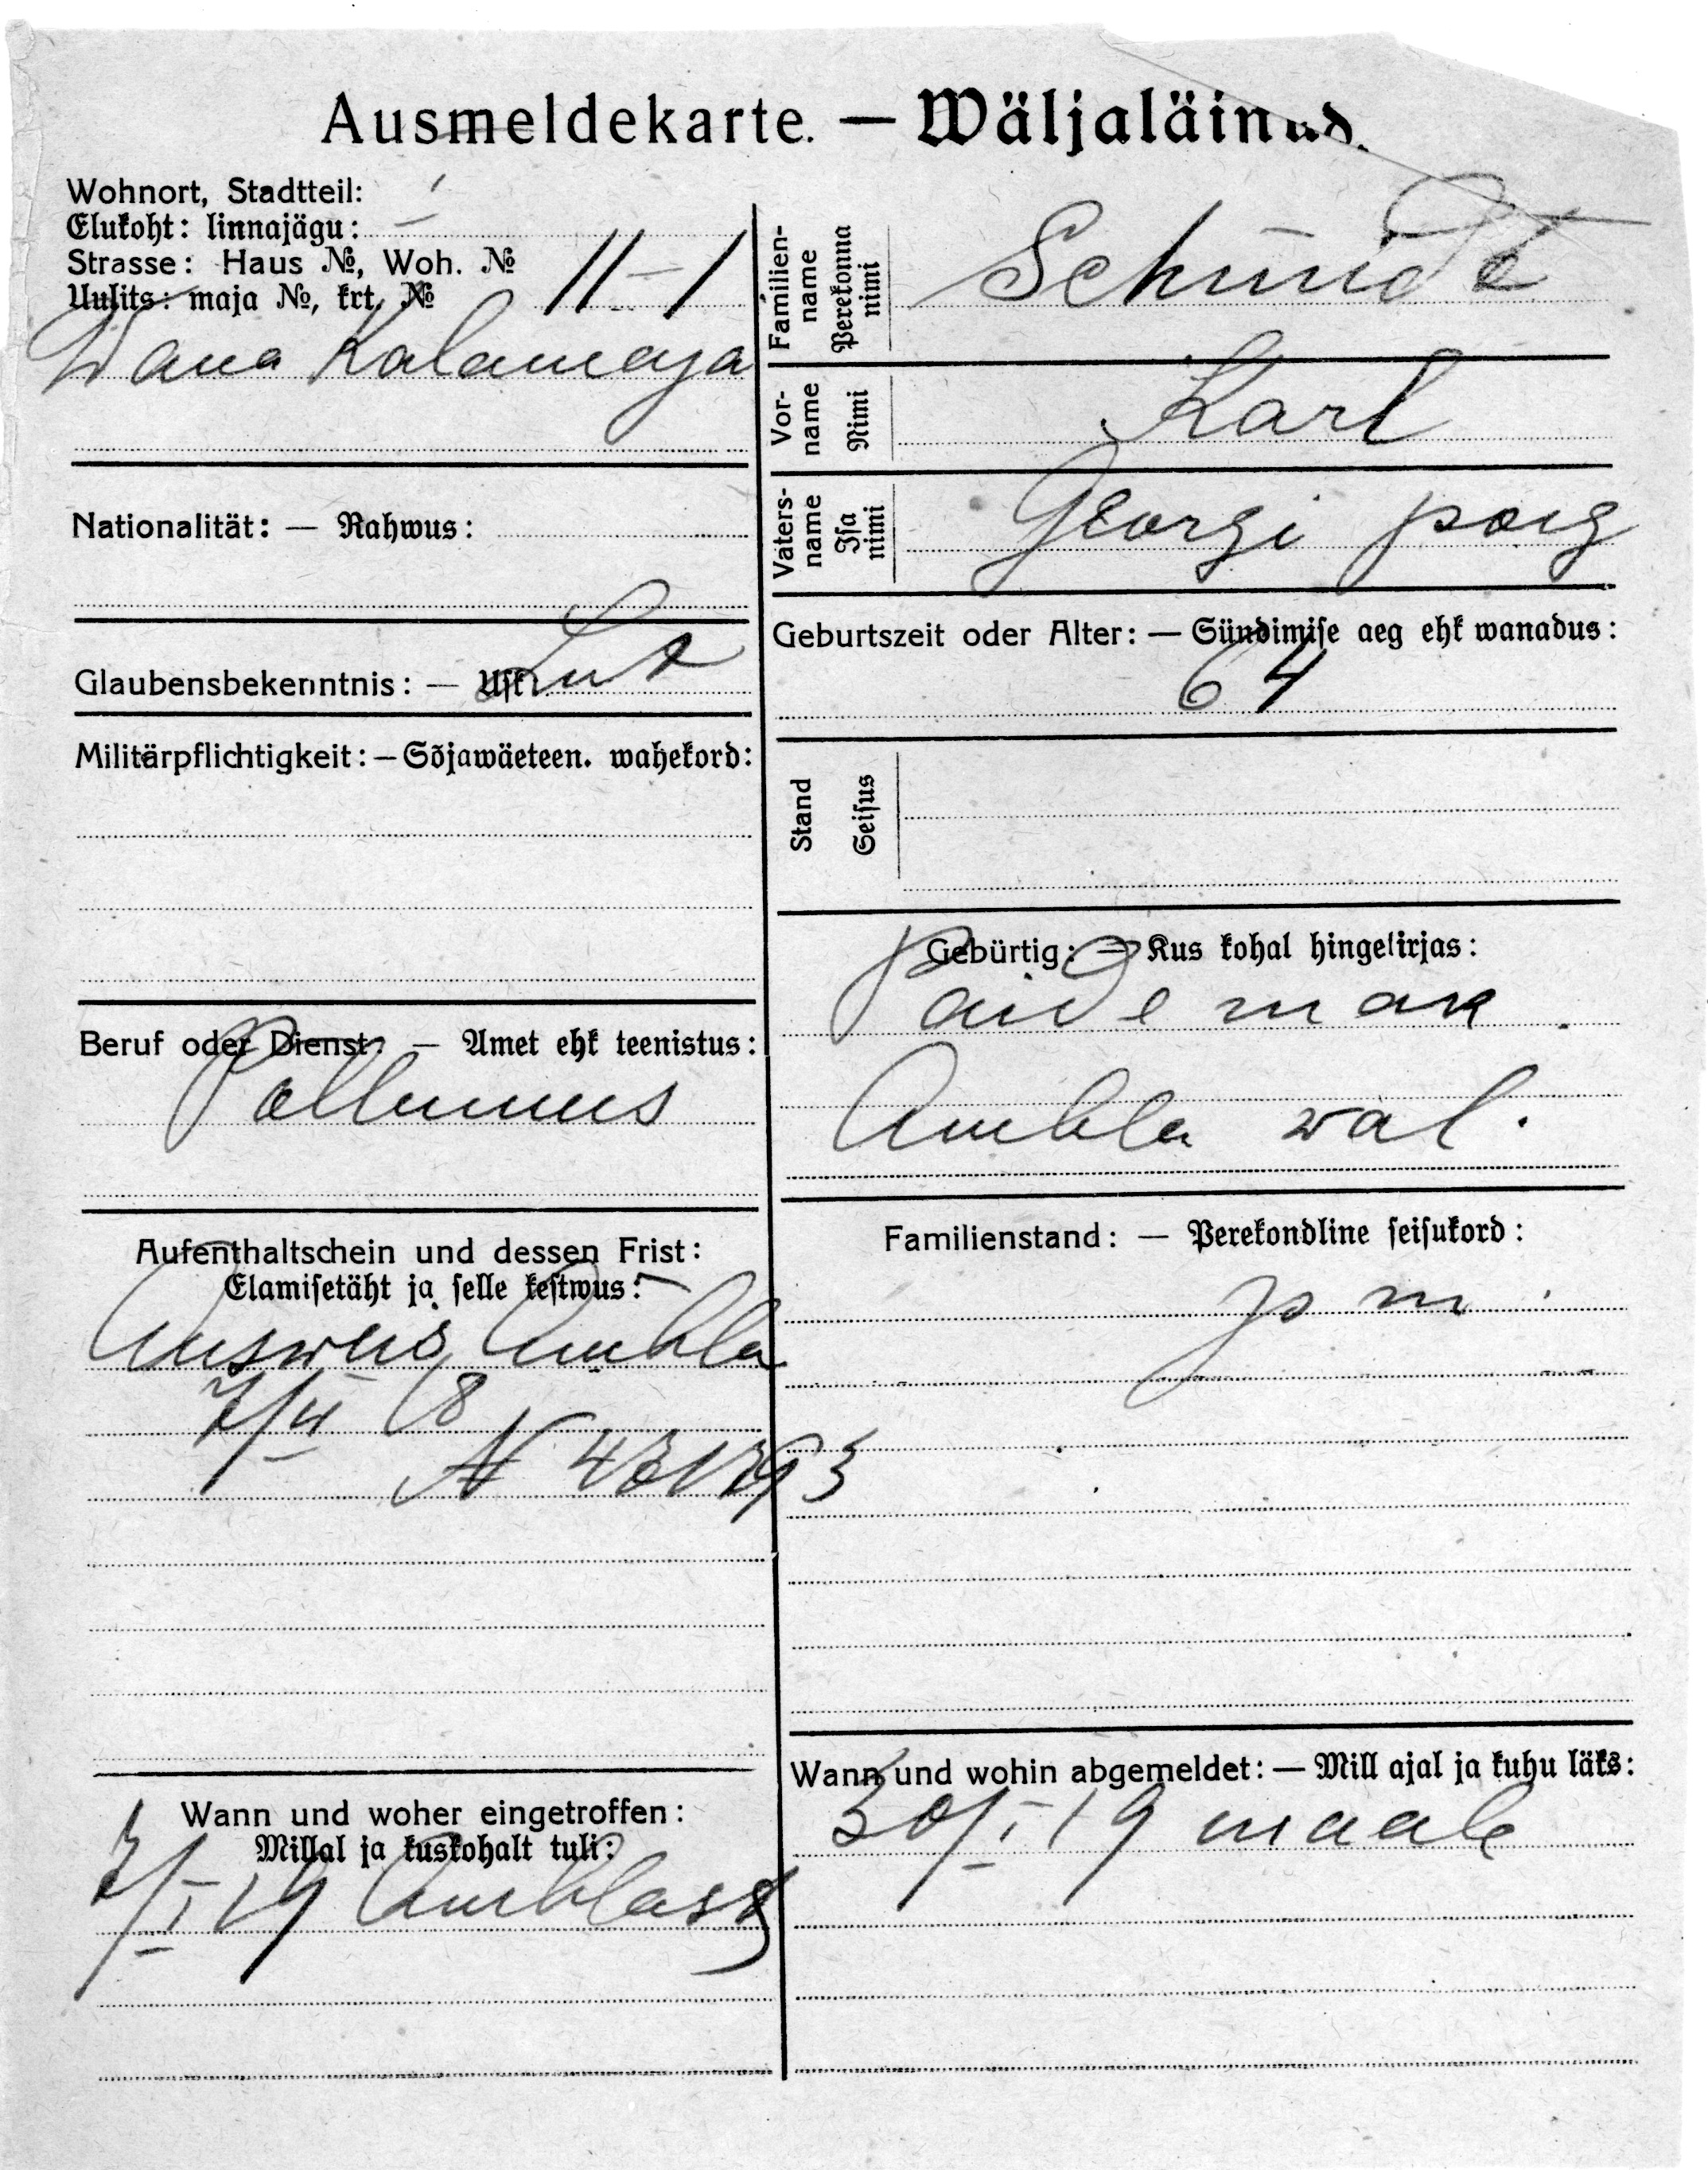 Ausmeldekarte. — Wäljaläinud.
Wohnort, Stadtteil:
Elukoht: linnajägu:
Strasse: Haus №, Woh. №
Uulits: maja №, krt. №
11-1
Wana Kalamaja
Nationalität: — Rahwus:
Glaubensbekenntnis: — Usk: Lut
Militärpflichtigkeit: — Sõjawäeteen. wahekord:
Beruf oder Dienst: — Amet ehk teenistus:
Põllumees
Aufenthaltschein und dessen Frist:
Elamisetäht ja selle kestwus:
Ausweis Ambla
7/II 18
N
Wann und woher eingetroffen:
Millal ja kuskohalt tuli:
7/I 19 Amblast
Familienname
Perekonna nimi
Schmidt
Vorname
Nimi
Karl
Vatersname
Isa nimi
Georgi poig
Geburtszeit oder Alter: — Sündimise aeg ehk wanadus:
64
Stand
Seisus
Gebürtig: — Kus kohal hingekirjas:
Paide mak
Ambla wal.
Familienstand: — Perekondline seisukord:
Wann und wohin abgemeldet: — Mill ajal ja kuhu läks:
30/I 19 maale